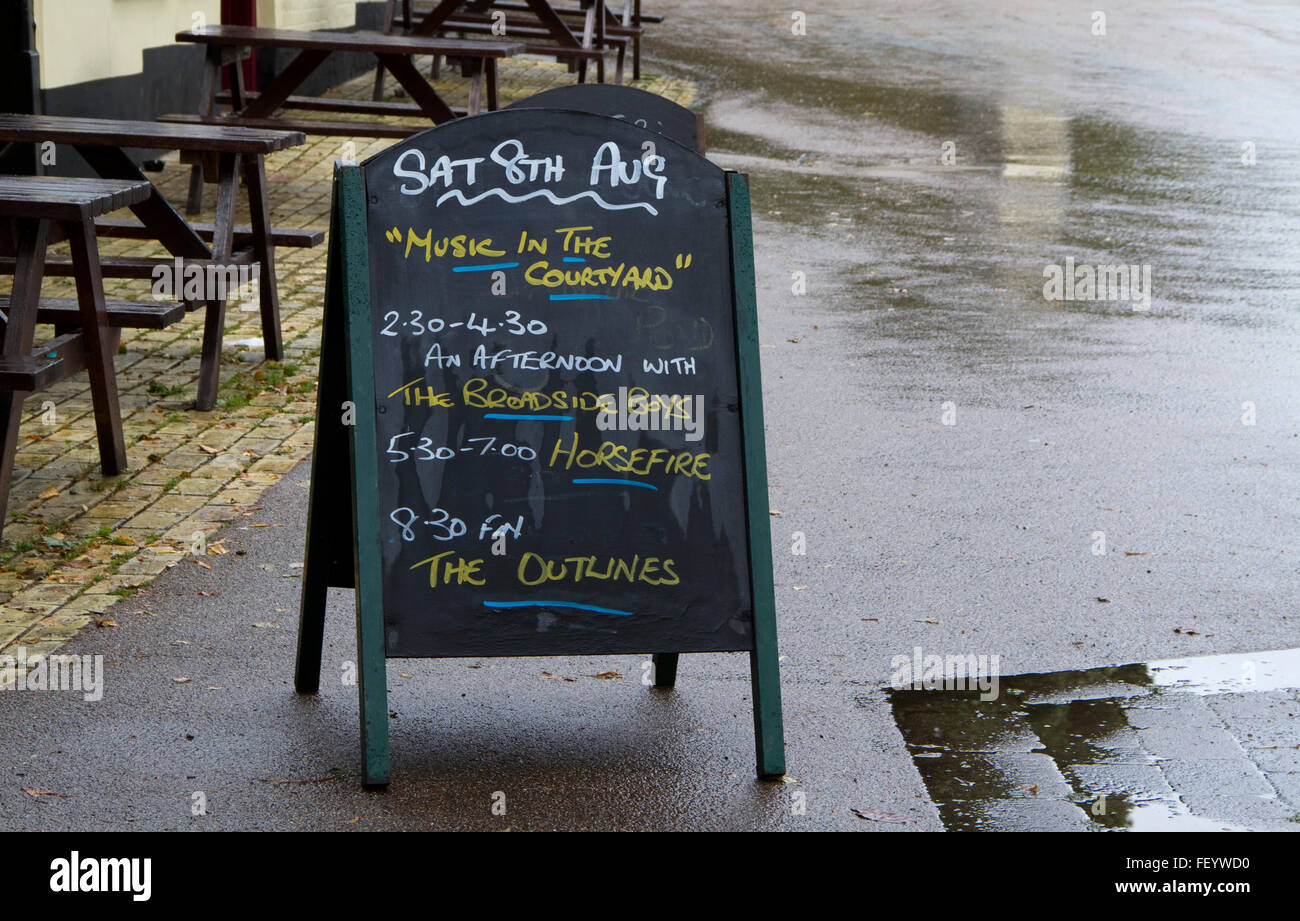 SAT 8TH AUG
"MUSIC IN THE
COURTYARD"
2.30-4.30
AN AFTERNOON WITH
THE BROADSIDE BOYS
5.30-7.00 HORSEFIRE
8.30 FM
THE OUTLINES
a
alamy
a
alamy
a
alamy stock photo
FEYWD0
www.alamy.com